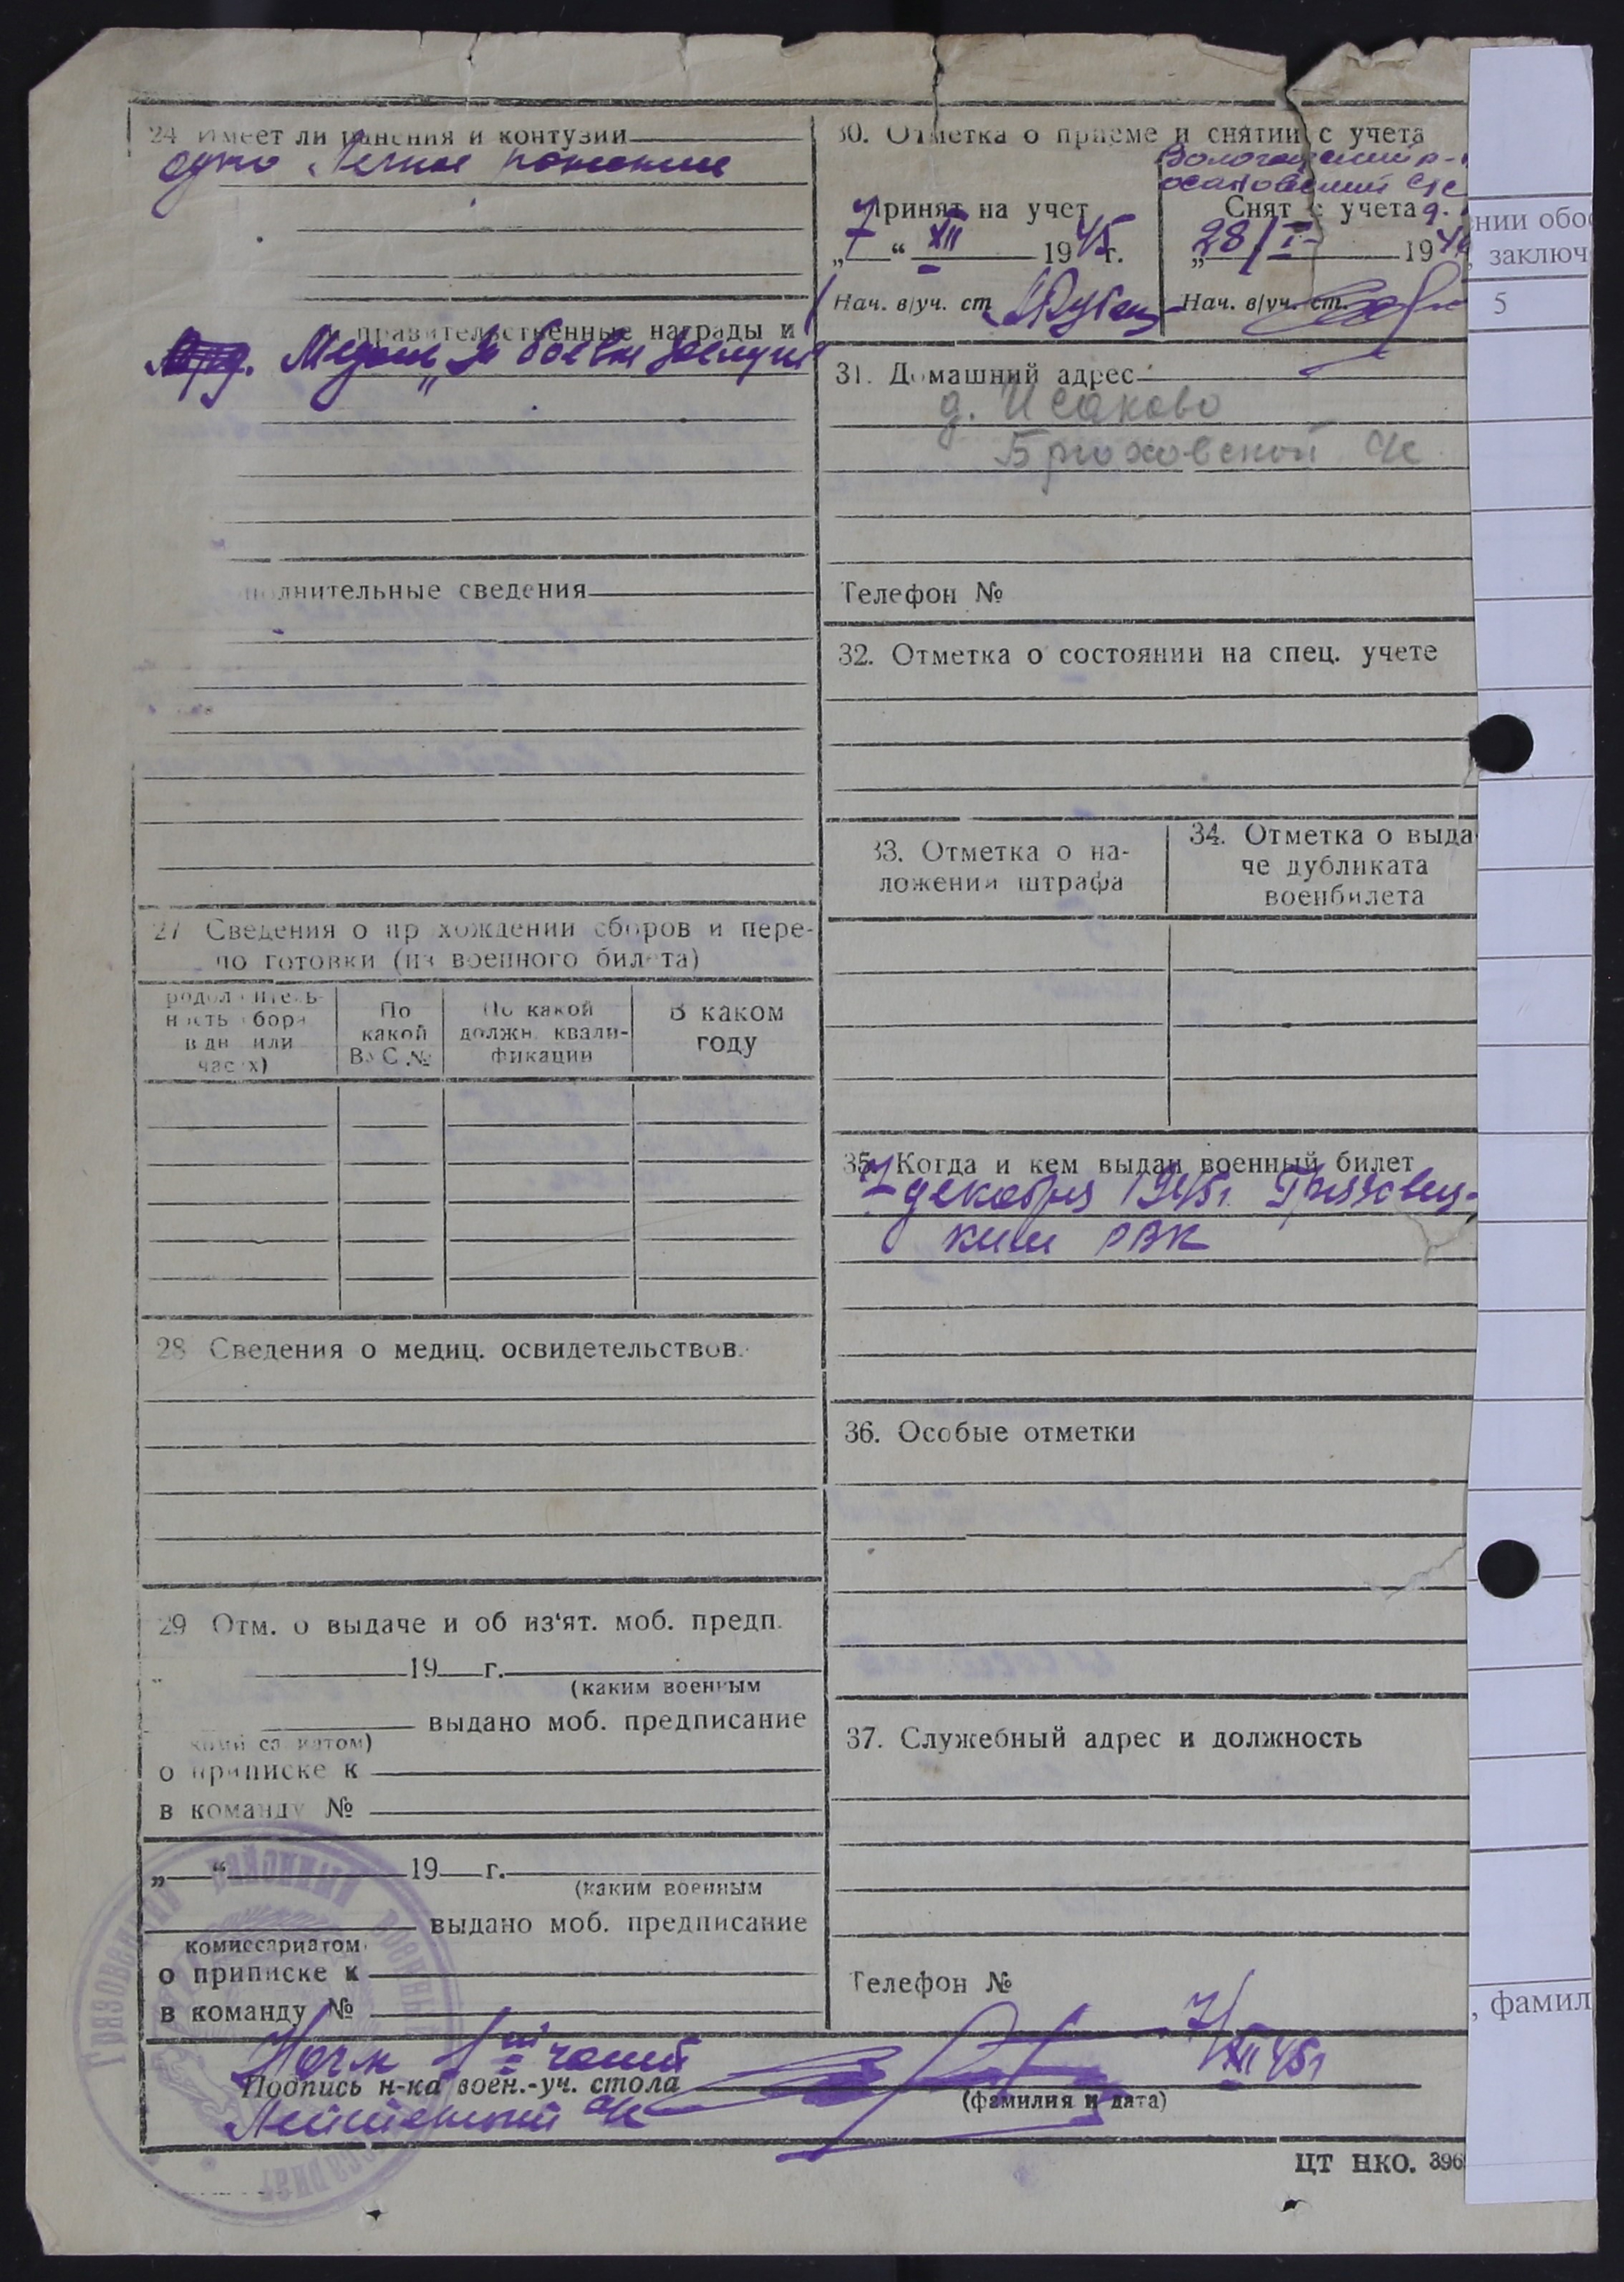 24 Имеет ли ранения и контузии
одно легкое ранение
правительственные награды и
Медаль „За боевые заслуги
полнительные сведения
27 Сведения о пр хождении сборов и пере-
по готовки (из военного бил та)
родол итель-
н сть сбора
в дн или
час х)
По
какой
ВУС №
По какой
должн. квали-
фикации
В каком
году
28 Сведения о медиц. освидетельствов.
29 Отм. о выдаче и об из‘ят. моб. предп.
19 г.
(каким военным
выдано моб. предписание
сариатом)
о приписке к
в команду №
„ “ 19 г.
(каким военным
выдано моб. предписание
комиссариатом
о приписке к
в команду №
30. Отметка о приеме и снятии с учета
Принят на учет
„7“ XII 1945 г.
Нач. в/уч. ст
Снят с учета
„28/I 194
Нач. в/уч. ст.
31. Домашний адрес
д. Исаково
Брюховской с/с
Телефон №
32. Отметка о состоянии на спец. учете
33. Отметка о на-
ложении штрафа
34. Отметка о выда
че дубликата
военбилета
35. Когда и кем выдан военный билет
7 декабря 1945 г. Грязовец-
ким РВК
36. Особые отметки
37. Служебный адрес и должность
Телефон №
Начк 1ой части
7/XII 45 г
Подпись н-ка воен.-уч. стола
(фамилия и дата)
Лейтенант а/с
ЦТ НКО. 396
нии обо
, заключ
5
, фамил